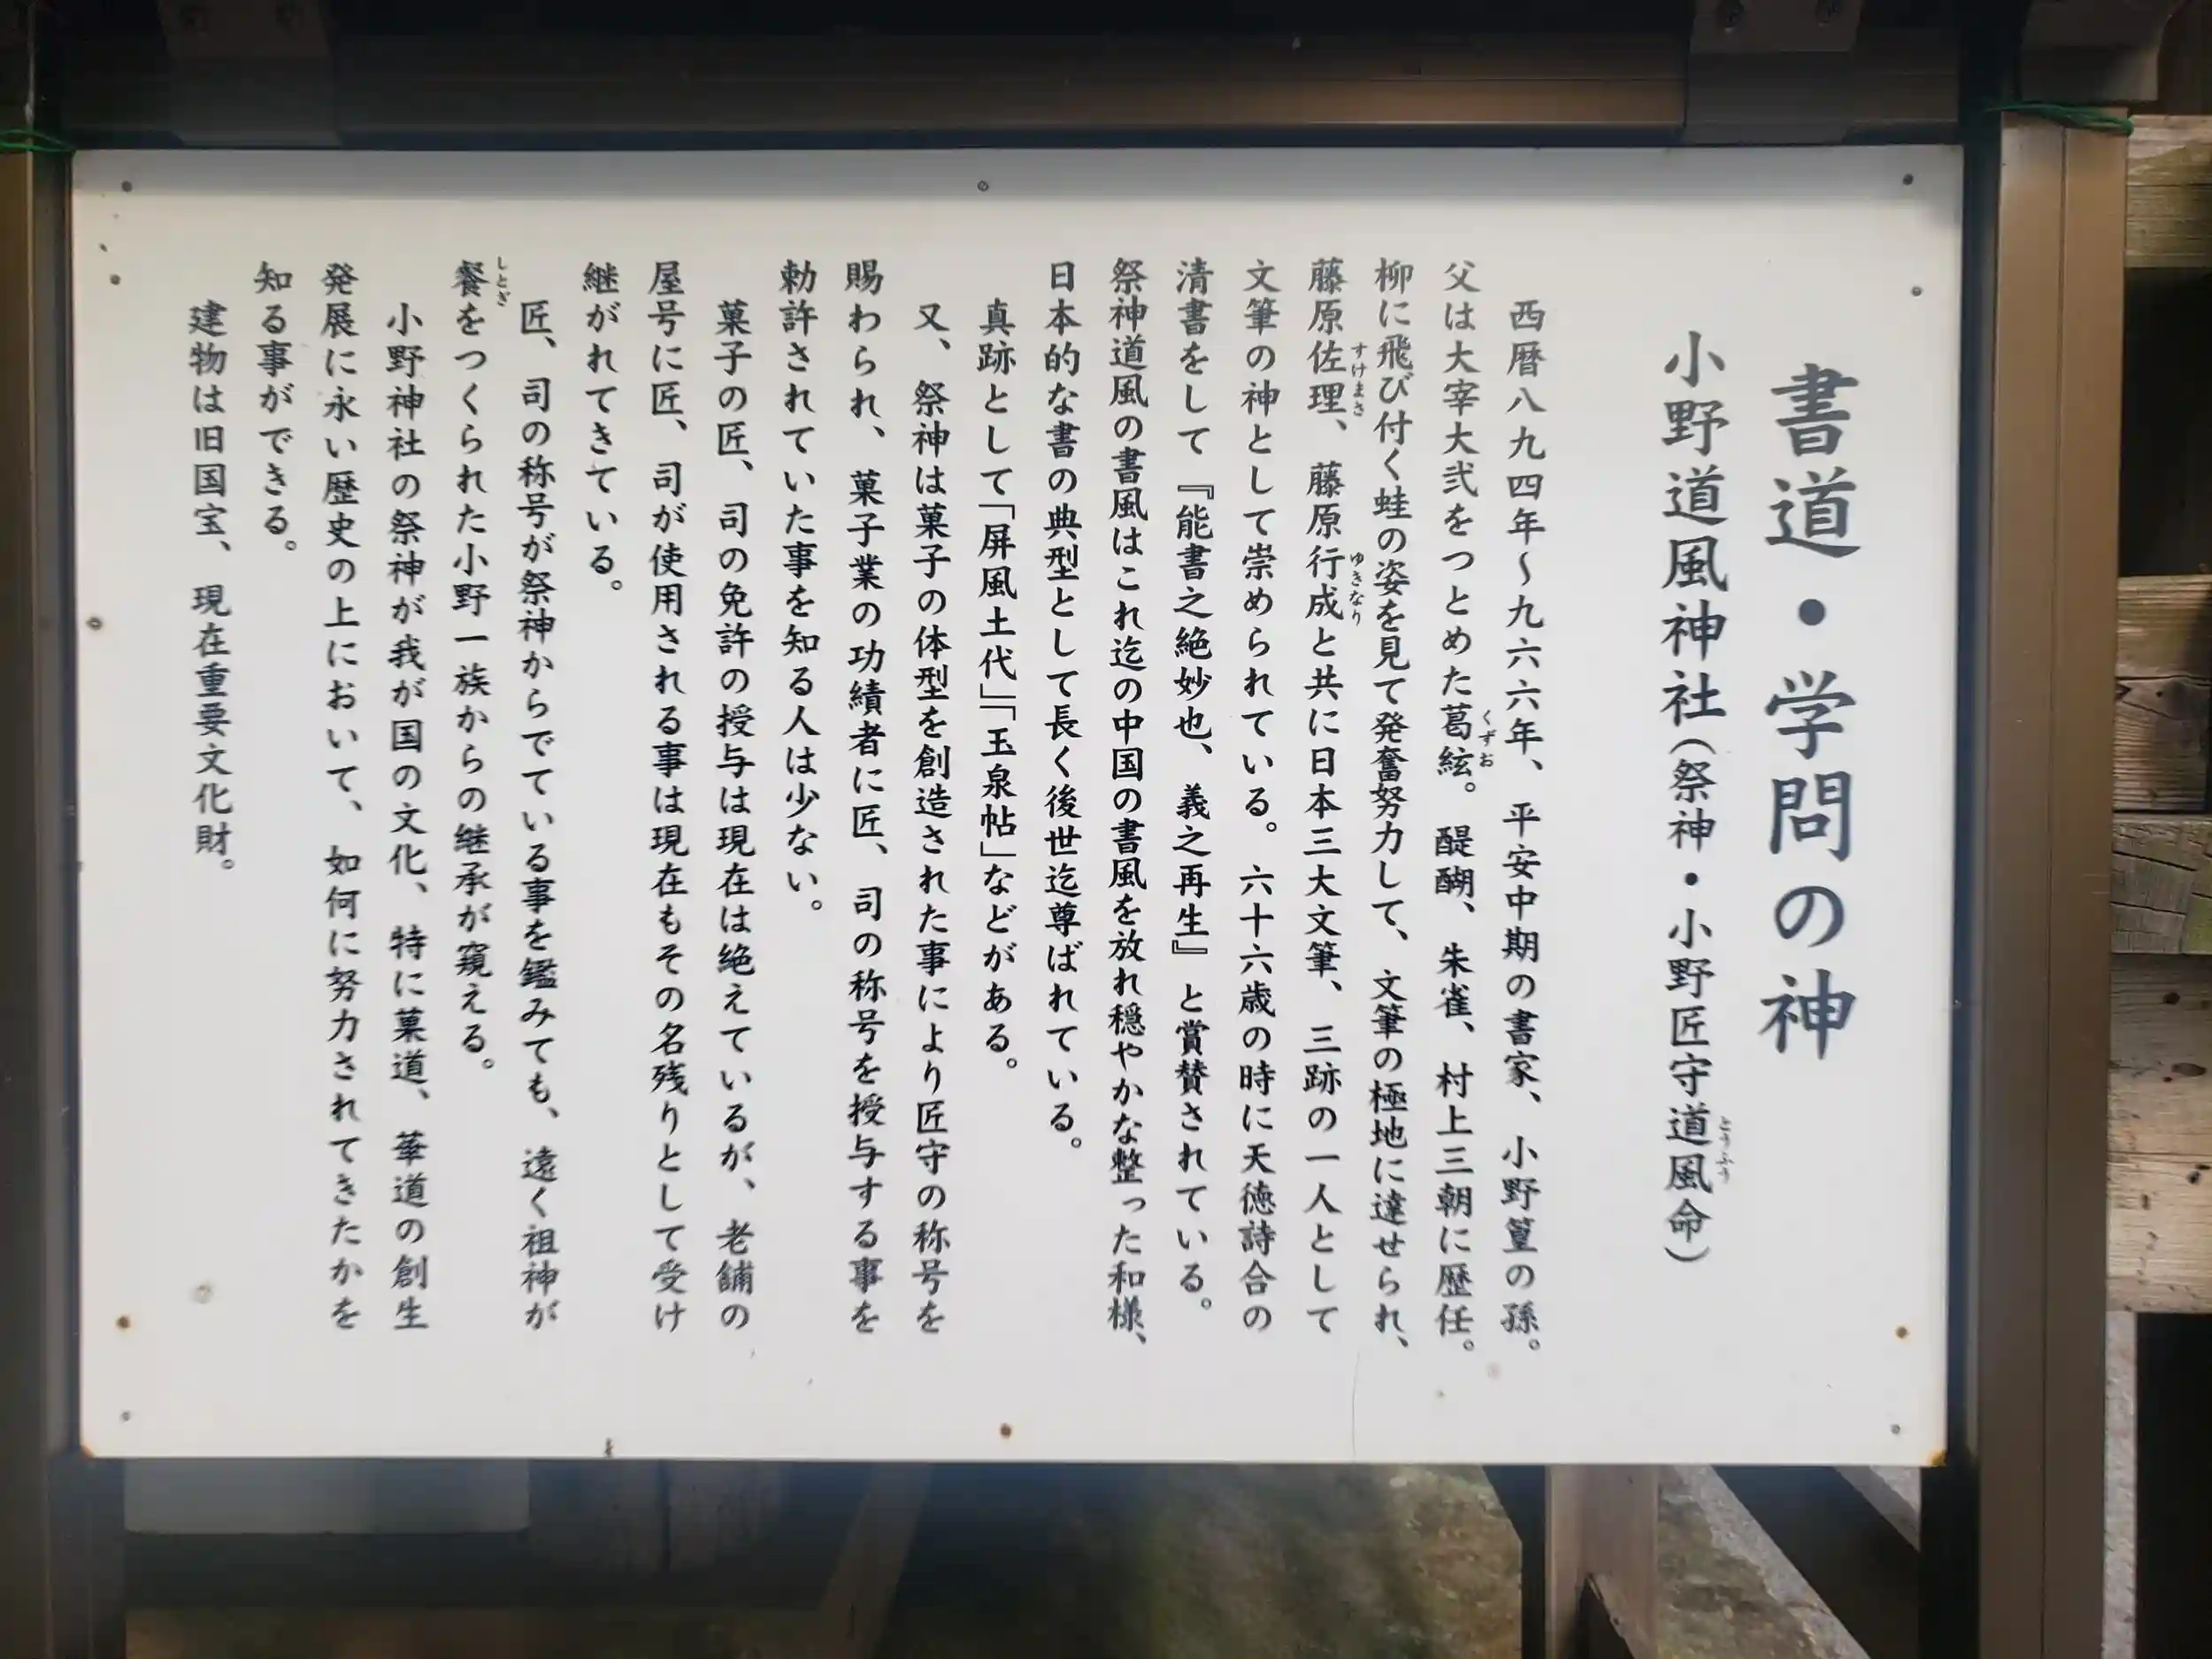 書道・学問の神
小野道風神社（祭神・小野匠守道風命）
とうふう
西暦八九四年～九六六年、平安中期の書家、小野篁の孫。
父は大宰大弐をつとめた葛絃。醍醐、朱雀、村上三朝に歴任。
くずお
柳に飛び付く蛙の姿を見て発奮努力して、文筆の極地に達せられ、
藤原佐理、藤原行成と共に日本三大文筆、三跡の一人として
すけまさ
ゆきなり
文筆の神として崇められている。六十六歳の時に天徳詩合の
清書をして『能書之絶妙也、義之再生』と賞賛されている。
祭神道風の書風はこれ迄の中国の書風を放れ穏やかな整った和様、
日本的な書の典型として長く後世迄尊ばれている。
真跡として「屏風土代」「玉泉帖」などがある。
又、祭神は菓子の体型を創造された事により匠守の称号を
賜わられ、菓子業の功績者に匠、司の称号を授与する事を
勅許されていた事を知る人は少ない。
菓子の匠、司の免許の授与は現在は絶えているが、老舗の
屋号に匠、司が使用される事は現在もその名残りとして受け
継がれてきている。
匠、司の称号が祭神からでている事を鑑みても、遠く祖神が
餐をつくられた小野一族からの継承が窺える。
しとぎ
小野神社の祭神が我が国の文化、特に菓道、華道の創生
発展に永い歴史の上において、如何に努力されてきたかを
知る事ができる。
建物は旧国宝、現在重要文化財。